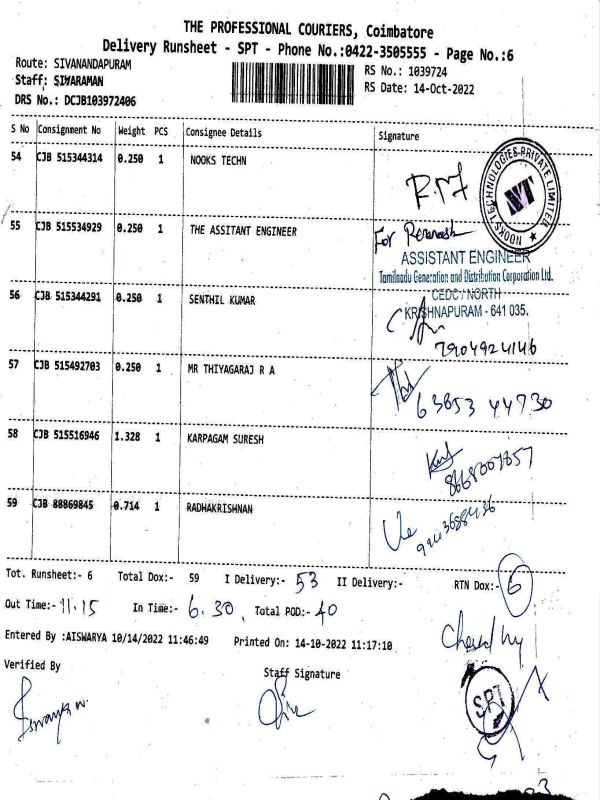 THE PROFESSIONAL COURIERS, Coimbatore
Delivery Runsheet - SPT - Phone No.:0422-3505555 - Page No.:6
Route: SIVANANDAPURAM
RS No.: 1039724
Staff: SIVARAMAN
RS Date: 14-Oct-2022
DRS No.: DCJB103972406
S No Consignment No Weight PCS Consignee Details Signature
54 CJB 515344314 0.250 1 NOOKS TECHN
NOOKS TECHNOLOGIES PRIVATE LIMITED
NT
55 CJB 515534929 0.250 1 THE ASSITANT ENGINEER
For
ASSISTANT ENGINEER
Tamilnadu Generation and Distribution Corporation Ltd.
CEDC / NORTH
KRISHNAPURAM - 641 035.
56 CJB 515344291 0.250 1 SENTHIL KUMAR
7904924146
57 CJB 515492703 0.250 1 MR THIYAGARAJ R A
63853 44730
58 CJB 515516946 1.328 1 KARPAGAM SURESH
59 CJB 88869845 0.714 1 RADHAKRISHNAN
Tot. Runsheet:- 6 Total Dox:- 59 I Delivery:- 53 II Delivery:- RTN Dox:- 6
Out Time:- 11.15 In Time:- 6.30 Total POD:- 40
Entered By :AISWARYA 10/14/2022 11:46:49 Printed On: 14-10-2022 11:17:10
Verified By
Staff Signature
SPT